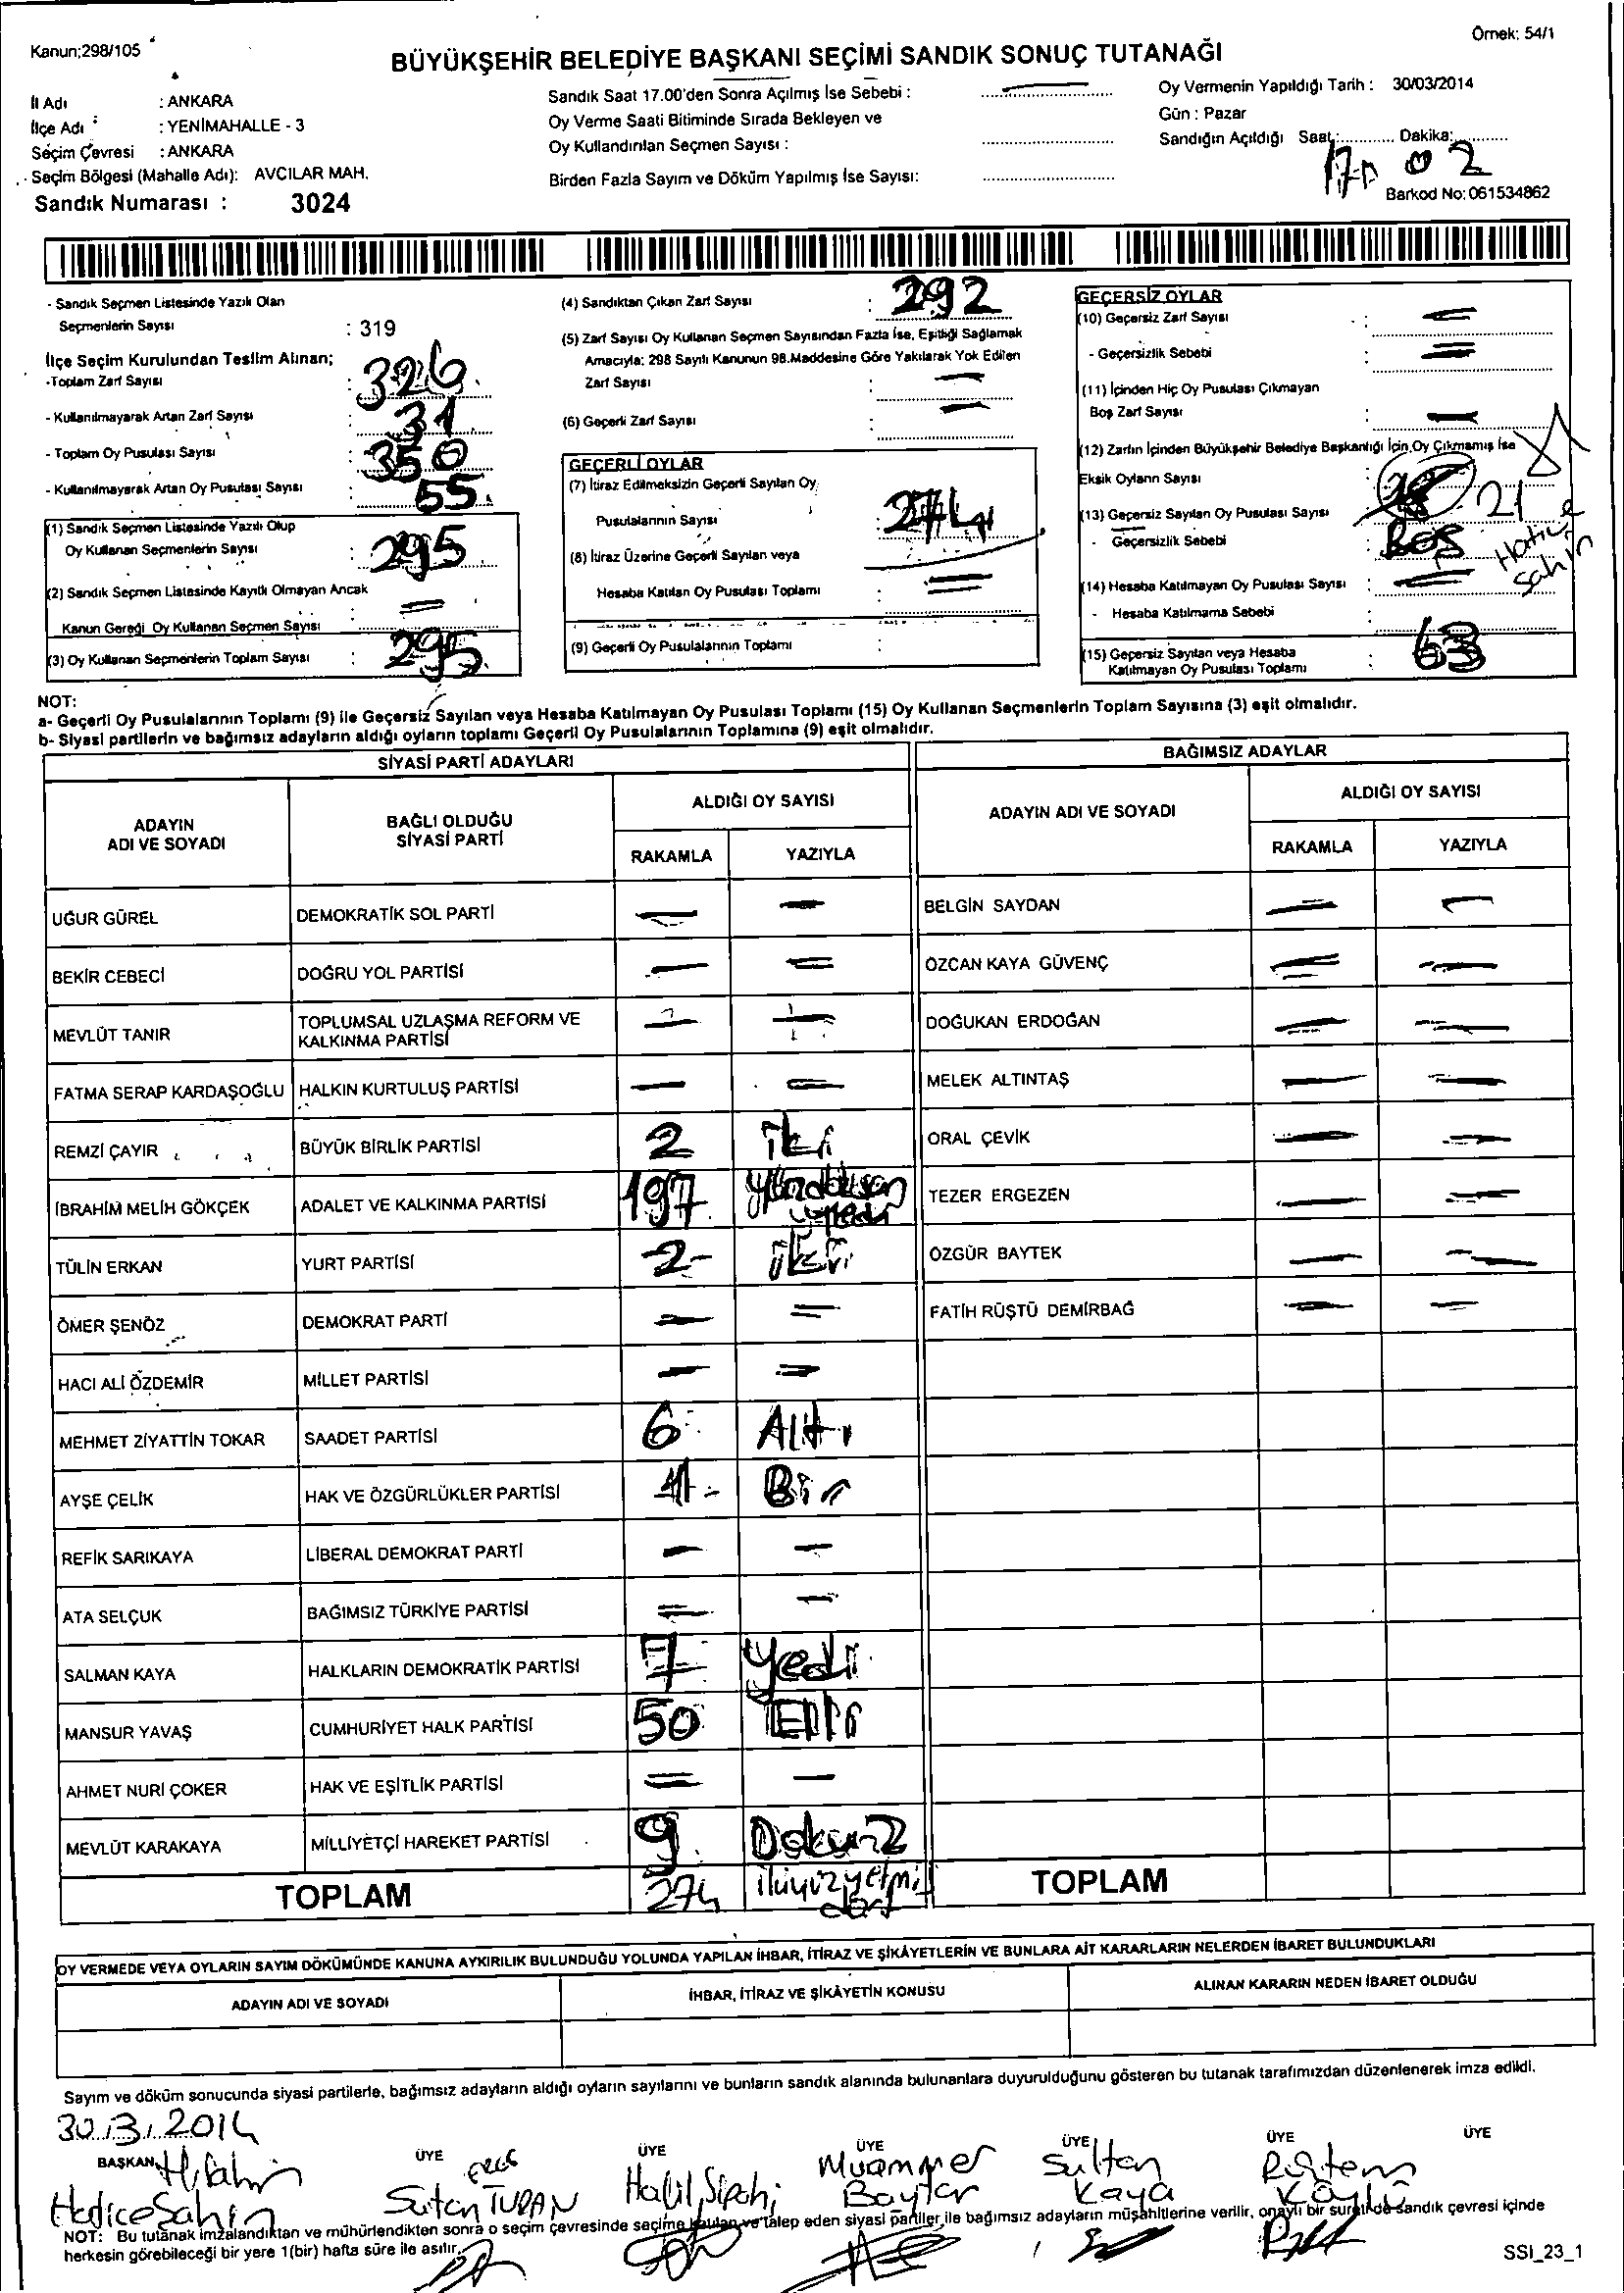 Kanun;298/105
Örnek: 54/1
BÜYÜKŞEHİR BELEDİYE BAŞKANI SEÇİMİ SANDIK SONUÇ TUTANAĞI
İl Adı : ANKARA
İlçe Adı : YENİMAHALLE - 3
Seçim Çevresi : ANKARA
Seçim Bölgesi (Mahalle Adı): AVCILAR MAH.
Sandık Numarası : 3024
Sandık Saat 17.00'den Sonra Açılmış İse Sebebi :
Oy Verme Saati Bitiminde Sırada Bekleyen ve
Oy Kullandırılan Seçmen Sayısı :
Birden Fazla Sayım ve Döküm Yapılmış İse Sayısı:
Oy Vermenin Yapıldığı Tarih : 30/03/2014
Gün : Pazar
Sandığın Açıldığı Saat:............ Dakika:............
02
Barkod No: 061534862
- Sandık Seçmen Listesinde Yazılı Olan
Seçmenlerin Sayısı : 319
İlçe Seçim Kurulundan Teslim Alınan;
-Toplam Zarf Sayısı : 326
- Kullanılmayarak Artan Zarf Sayısı : 31
- Toplam Oy Pusulası Sayısı : 350
- Kullanılmayarak Artan Oy Pusulası Sayısı : 55
(1) Sandık Seçmen Listesinde Yazılı Olup
Oy Kullanan Seçmenlerin Sayısı : 295
(2) Sandık Seçmen Listesinde Kayıtlı Olmayan Ancak
Kanun Gereği Oy Kullanan Seçmen Sayısı :
(3) Oy Kullanan Seçmenlerin Toplam Sayısı : 295
(4) Sandıktan Çıkan Zarf Sayısı : 292
(5) Zarf Sayısı Oy Kullanan Seçmen Sayısından Fazla İse, Eşitliği Sağlamak
Amacıyla; 298 Sayılı Kanunun 98.Maddesine Göre Yakılarak Yok Edilen
Zarf Sayısı :
(6) Geçerli Zarf Sayısı :
GEÇERLİ OYLAR
(7) İtiraz Edilmeksizin Geçerli Sayılan Oy
Pusulalarının Sayısı : 274
(8) İtiraz Üzerine Geçerli Sayılan veya
Hesaba Katılan Oy Pusulası Toplamı :
(9) Geçerli Oy Pusulalarının Toplamı :
GEÇERSİZ OYLAR
(10) Geçersiz Zarf Sayısı :
- Geçersizlik Sebebi :
(11) İçinden Hiç Oy Pusulası Çıkmayan
Boş Zarf Sayısı :
(12) Zarfın İçinden Büyükşehir Belediye Başkanlığı İçin Oy Çıkmamış İse
Eksik Oyların Sayısı :
(13) Geçersiz Sayılan Oy Pusulası Sayısı : 21
- Geçersizlik Sebebi : BOŞ
Hatice
Şahin
(14) Hesaba Katılmayan Oy Pusulası Sayısı :
- Hesaba Katılmama Sebebi :
(15) Geçersiz Sayılan veya Hesaba
Katılmayan Oy Pusulası Toplamı : 63
NOT:
a- Geçerli Oy Pusulalarının Toplamı (9) ile Geçersiz Sayılan veya Hesaba Katılmayan Oy Pusulası Toplamı (15) Oy Kullanan Seçmenlerin Toplam Sayısına (3) eşit olmalıdır.
b- Siyasi partilerin ve bağımsız adayların aldığı oyların toplamı Geçerli Oy Pusulalarının Toplamına (9) eşit olmalıdır.
SİYASİ PARTİ ADAYLARI
ADAYIN ADI VE SOYADI
BAĞLI OLDUĞU SİYASİ PARTİ
ALDIĞI OY SAYISI
RAKAMLA YAZIYLA
UĞUR GÜREL DEMOKRATİK SOL PARTİ
BEKİR CEBECİ DOĞRU YOL PARTİSİ
MEVLÜT TANIR TOPLUMSAL UZLAŞMA REFORM VE
KALKINMA PARTİSİ
FATMA SERAP KARDAŞOĞLU HALKIN KURTULUŞ PARTİSİ
REMZİ ÇAYIR BÜYÜK BİRLİK PARTİSİ 2 iki
İBRAHİM MELİH GÖKÇEK ADALET VE KALKINMA PARTİSİ 197
TÜLİN ERKAN YURT PARTİSİ -2- iki
ÖMER ŞENÖZ DEMOKRAT PARTİ
HACI ALİ ÖZDEMİR MİLLET PARTİSİ
MEHMET ZİYATTİN TOKAR SAADET PARTİSİ 6 Altı
AYŞE ÇELİK HAK VE ÖZGÜRLÜKLER PARTİSİ 1 Bir
REFİK SARIKAYA LİBERAL DEMOKRAT PARTİ
ATA SELÇUK BAĞIMSIZ TÜRKİYE PARTİSİ
SALMAN KAYA HALKLARIN DEMOKRATİK PARTİSİ 7 yedi
MANSUR YAVAŞ CUMHURİYET HALK PARTİSİ 50 Elli
AHMET NURİ ÇOKER HAK VE EŞİTLİK PARTİSİ
MEVLÜT KARAKAYA MİLLİYETÇİ HAREKET PARTİSİ 9 Dokuz
TOPLAM 274
BAĞIMSIZ ADAYLAR
ADAYIN ADI VE SOYADI
ALDIĞI OY SAYISI
RAKAMLA YAZIYLA
BELGİN SAYDAN
ÖZCAN KAYA GÜVENÇ
DOĞUKAN ERDOĞAN
MELEK ALTINTAŞ
ORAL ÇEVİK
TEZER ERGEZEN
ÖZGÜR BAYTEK
FATİH RÜŞTÜ DEMİRBAĞ
TOPLAM
OY VERMEDE VEYA OYLARIN SAYIM DÖKÜMÜNDE KANUNA AYKIRILIK BULUNDUĞU YOLUNDA YAPILAN İHBAR, İTİRAZ VE ŞİKÂYETLERİN VE BUNLARA AİT KARARLARIN NELERDEN İBARET BULUNDUKLARI
ADAYIN ADI VE SOYADI
İHBAR, İTİRAZ VE ŞİKÂYETİN KONUSU
ALINAN KARARIN NEDEN İBARET OLDUĞU
Sayım ve döküm sonucunda siyasi partilerle, bağımsız adayların aldığı oyların sayılarını ve bunların sandık alanında bulunanlara duyurulduğunu gösteren bu tutanak tarafımızdan düzenlenerek imza edildi.
30.3.2014
BAŞKAN ÜYE ÜYE ÜYE ÜYE ÜYE ÜYE
Hatice Şahin
Sultan TURAN
Halil Sipahi
Muammer
Baytar
Sultan
Kaya
Rüstem
Köylü
NOT: Bu tutanak imzalandıktan ve mühürlendikten sonra o seçim çevresinde seçime katılan ve talep eden siyasi partiler ile bağımsız adayların müşahitlerine verilir, onaylı bir sureti de sandık çevresi içinde
herkesin görebileceği bir yere 1(bir) hafta süre ile asılır.
SSI_23_1